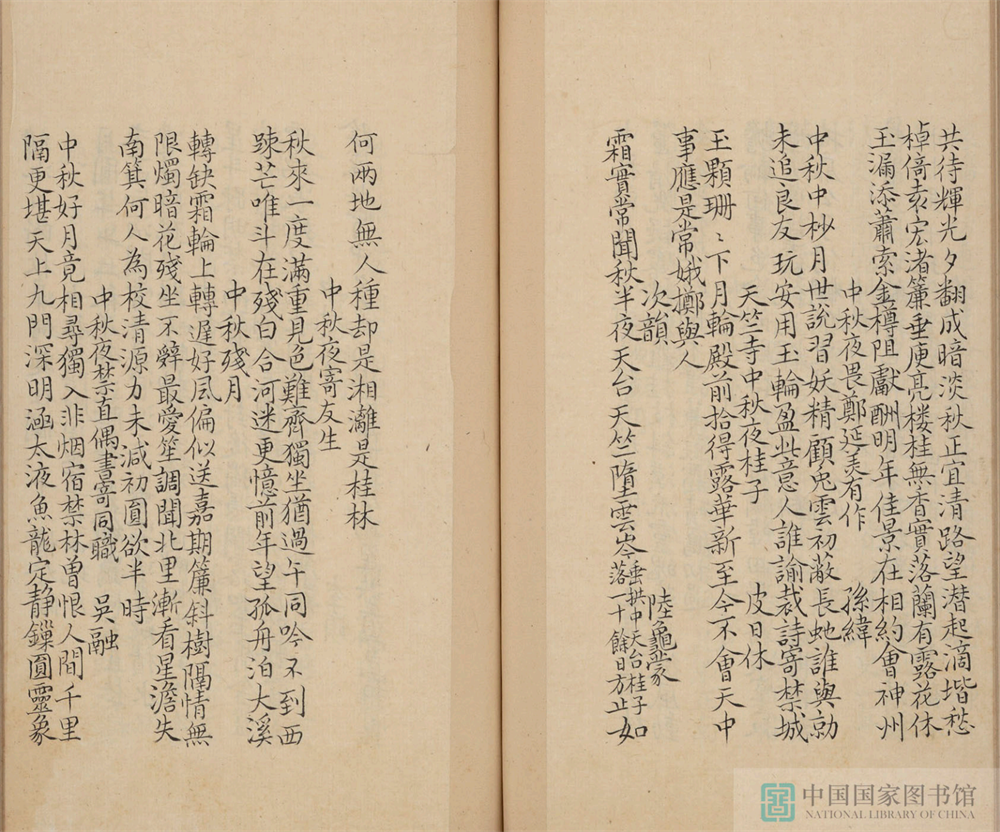 共待輝光夕翻成暗淡秋正宜清路望潛起滴堦愁
棹倚袁宏渚簾垂庾亮楼桂無香實落蘭有露花休
玉漏添蕭索金樽阻獻酬明年佳景在相約會神州
中秋夜畏鄭延美有作 孫緯
中秋中杪月世説習妖精顧兔雲初蔽長虵誰與勍
未追良友玩安用玉輪盈此意人誰諭裁詩寄禁城
天竺寺中秋夜桂子 皮日休
玉顆珊〻下月輪殿前拾得露華新至今不會天中
事應是常娥擲與人
次韻 陸龜蒙
霜實常聞秋半夜天台天竺墮雲岑垂拱中天台桂子落一十餘日方止如
何兩地無人種却是湘灕是桂林
中秋夜寄友生
秋來一度滿重見色難齊獨坐猶過午同吟不到西
踈芒唯斗在殘白合河迷更憶前年望孤舟泊大溪
中秋殘月
轉缺霜輪上轉遲好風偏似送嘉期簾斜樹隔情無
限燭暗花殘坐不辭最愛笙調聞北里漸看星澹失
南箕何人為校清源力未減初圓欲半時
中秋夜禁直偶書寄同職 吳融
中秋好月竟相尋獨入非烟宿禁林曾恨人間千里
隔更堪天上九門深明涵太液魚龍定静鏁圓靈象
中国国家图书馆
NATIONAL LIBRARY OF CHINA